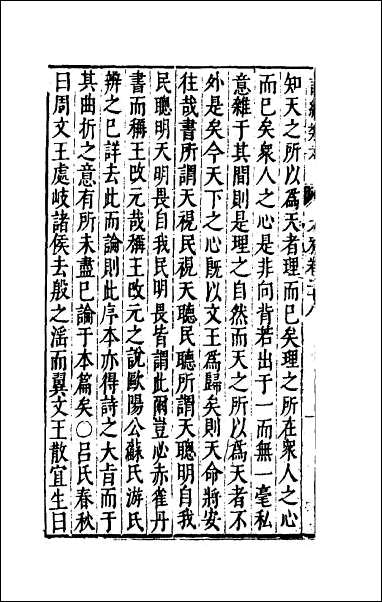 知天之所以爲天者理而已矣理之所在衆人之心
而已矣衆人之心是非向背若出于一而無一毫私
意雜于其間則是理之自然而天之所以爲天者不
外是矣今天下之心旣以文王爲歸矣則天命將安
往哉書所謂天視民視天聽民聽所謂天聰明自我
民聰明天明畏自我民明畏皆謂此爾豈心赤雀丹
書而稱王改元哉稱王改元之說歐陽公蘇氏游氏
辨之已詳去此而論則此序本亦得詩之大㫖而于
其曲折之意有所未盡已論于本篇矣〇呂氏春秋
曰周文王處岐諸侯去殷之淫而翼文王散宜生曰